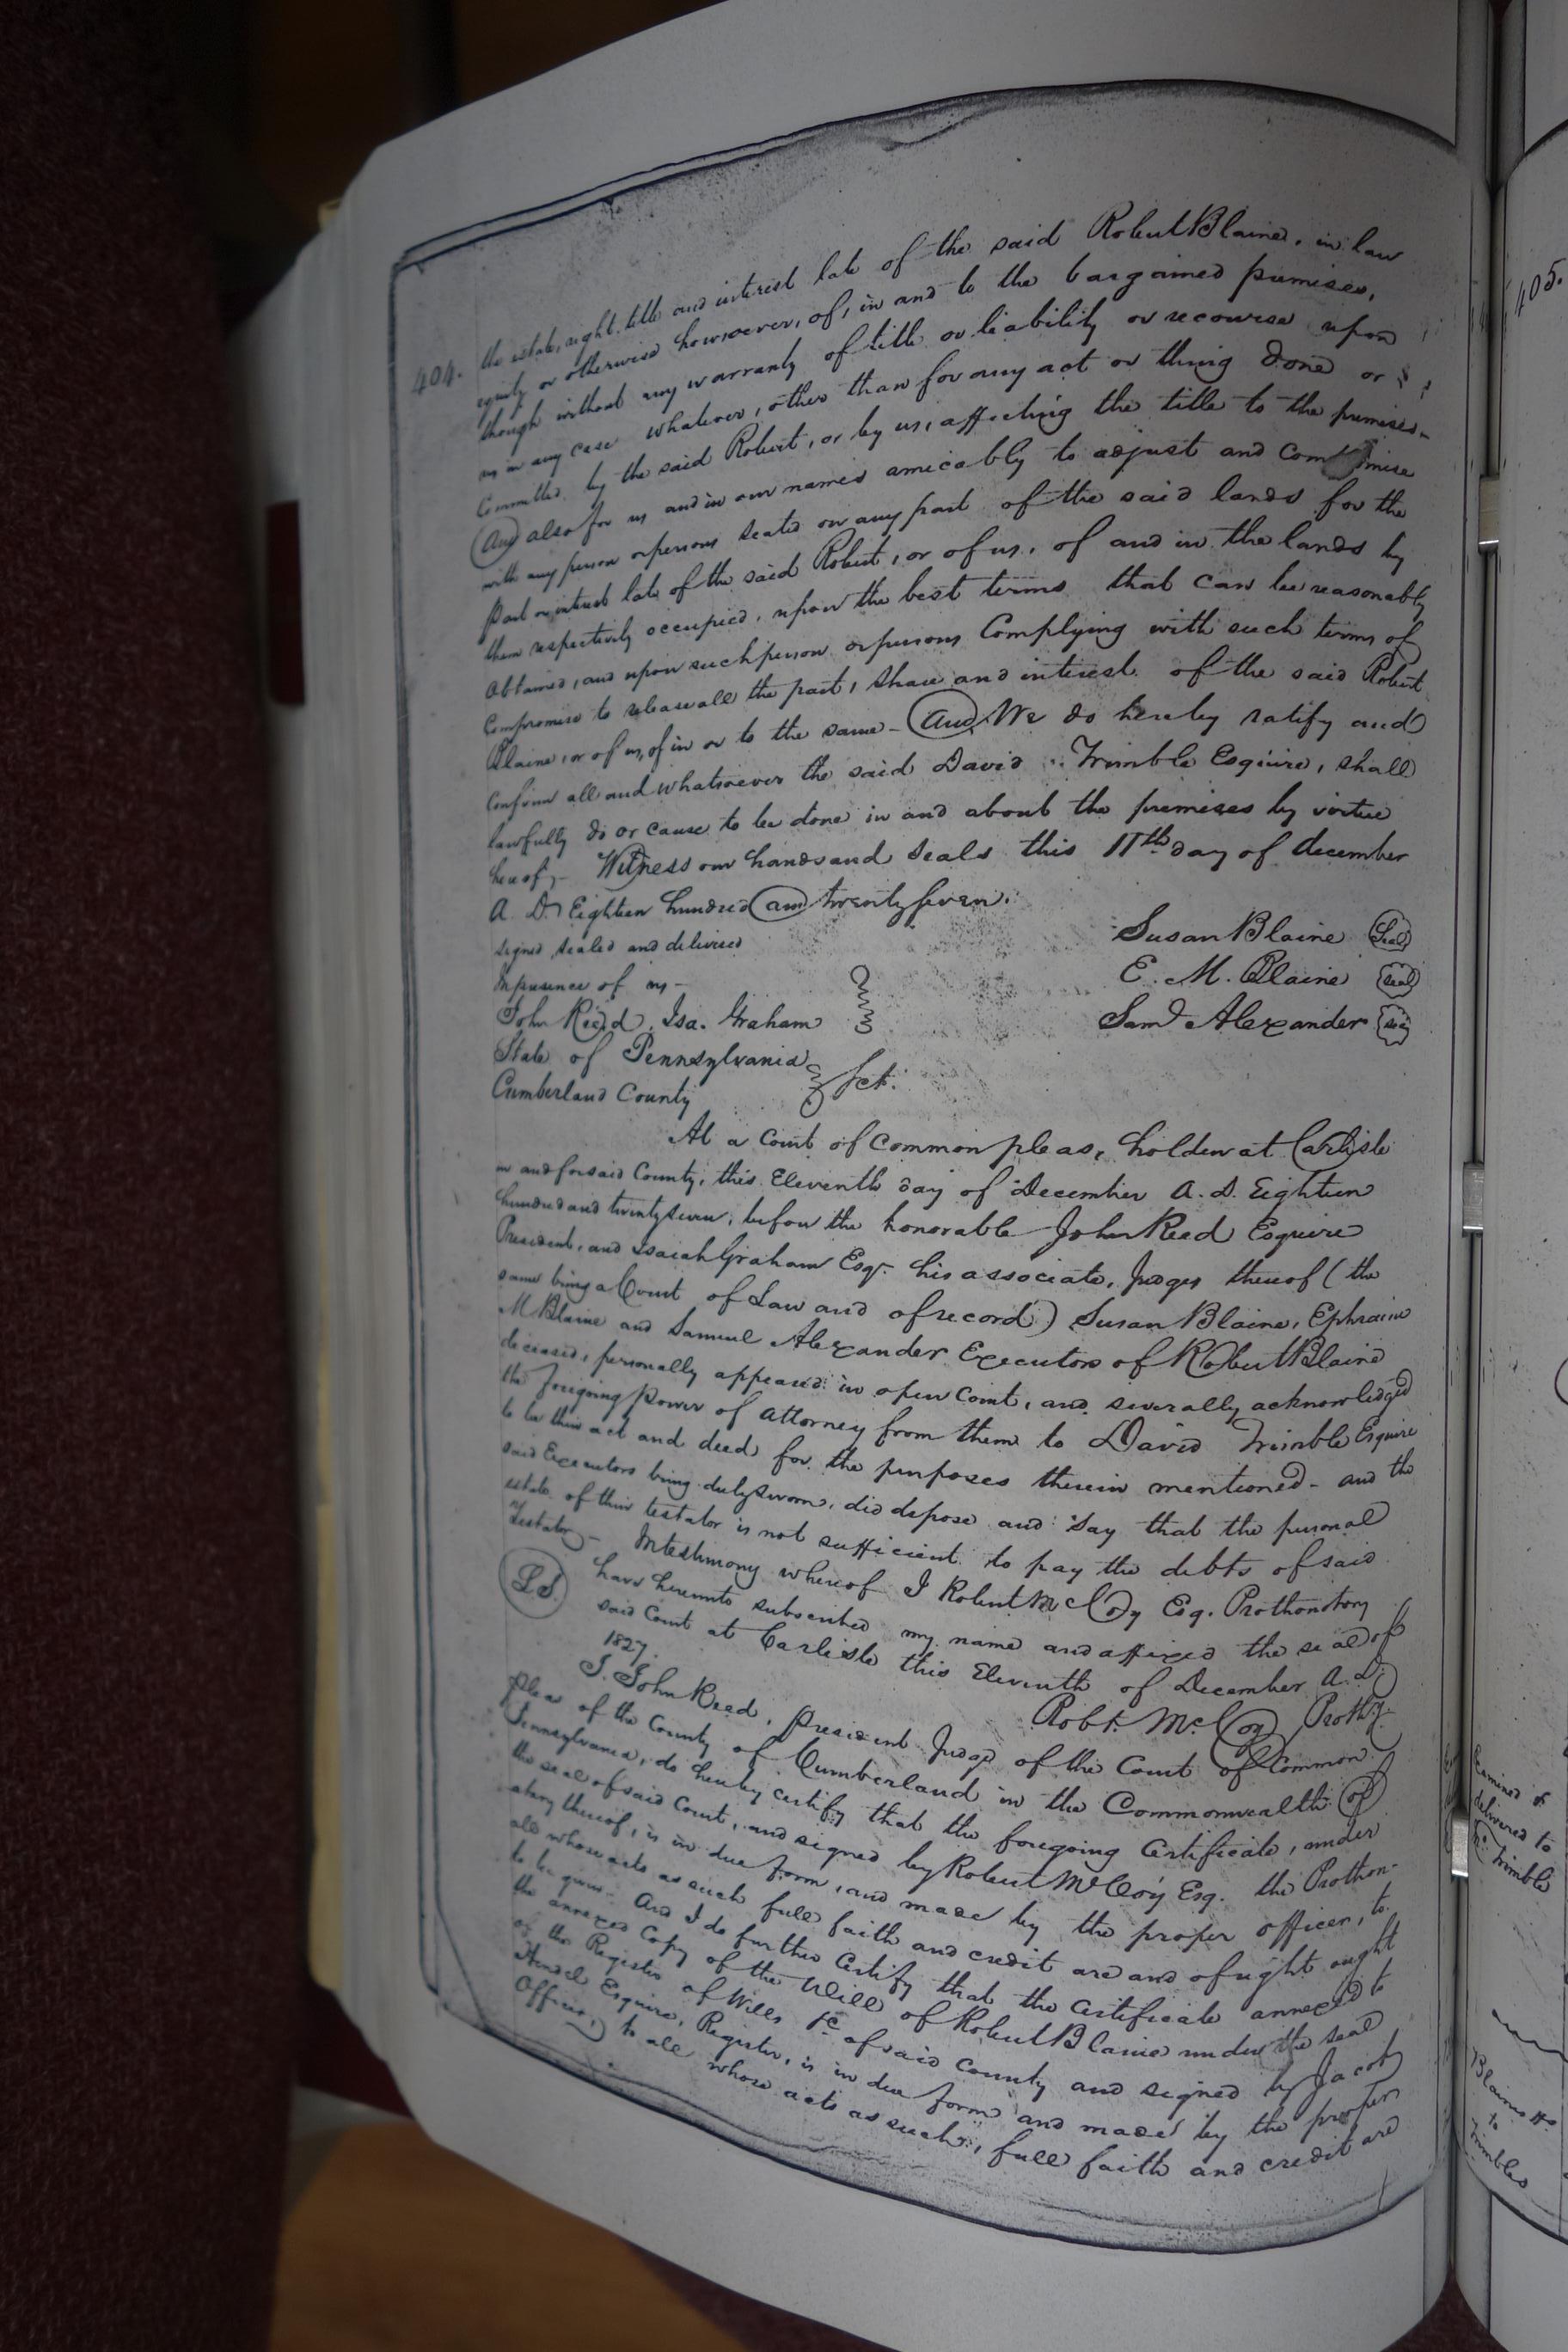 404.
the estate, right, title and interest late of the said Robert Blaine, in law
equity or otherwise howsoever, of, in and to the bargained premises,
though without any warranty of title or liability or recourse upon
us in any case whatever, other than for any act or thing done or
Committed by the said Robert, or by us, affecting the title to the premises-
And also for us and in our names amicably to adjust and compromise
with any person or persons seated on any part of the said lands for the
part or interest late of the said Robert, or of us, of and in the lands by
them respectively occupied, upon the best terms that can be reasonably
obtained, and upon such person or persons Complying with such terms of
Compromise to release all the part, share and interest of the said Robert
Blaine, or of us, of in or to the same - And We do hereby ratify and
Confirm all and whatsoever the said David Trimble Esquire, shall
lawfully do or cause to be done in and about the premises by virtue
hereof,- Witness our hands and seals this 11th day of december
A. D. Eighteen hundred and twenty seven.
signed sealed and delivered
In presence of us -
Susan Blaine Seal
E. M. Blaine seal
John Reed, Isa. Graham
Saml Alexander seal
State of Pennsylvania
Cumberland County
Sct.
At a Court of Common pleas, holden at Carlisle
in and for said County, this Eleventh day of December A. D. Eighteen
hundred and twenty seven, before the honorable John Reed Esquire
President, and Isaiah Graham Esqr. his associate, Judges thereof (the
same being a Court of Law and of record) Susan Blaine, Ephraim
M Blaine and Samuel Alexander Executors of Robert Blaine
deceased, personally appeared in open Court, and severally acknowledged
the foregoing power of attorney from them to David Trimble Esquire
to be their act and deed for the purposes therein mentioned - and the
said Executors being duly sworn, did depose and say that the personal
estate of their testator is not sufficient to pay the debts of said
Testator - In testimony whereof I Robert McCoy Esq. Prothonotary
L.S. have hereunto subscribed my name and affixed the seal of
said Court at Carlisle this Eleventh of December A. D.
1827.
Robt. McCoy Prothy.
I. John Reed, President Judge of the Court of Common
pleas of the County of Cumberland in the Commonwealth of
Pennsylvania, do hereby certify that the foregoing Certificate, under
the seal of said Court, and signed by Robert McCoy Esq. the Prothon-
otary thereof, is in due form, and made by the proper officer, to
all whose acts as such full faith and credit are and of right ought
to be given - And I do further Certify that the Certificate annexed to
the annexed Copy of the Will of Robert Blaine under the seal
of the Register of Wills &c of said County and signed by Jacob
Hendel Esquire, Register, is in due form and made by the proper
Officer, to all whose acts as such, full faith and credit are
405.
Examined &
delivered to
Mr. Trimble
Blaines
to
Trimbles